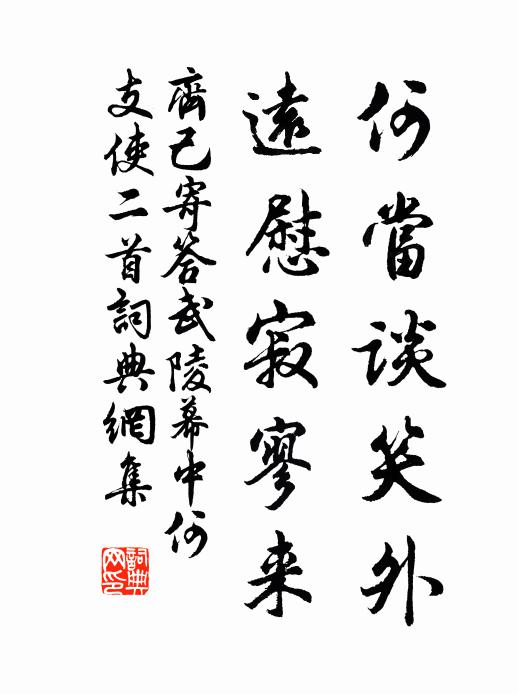 何當談笑外
遠慰寂寥来
齊己寄答武陵幕中何
支使二首詞典網集
詞典
网印